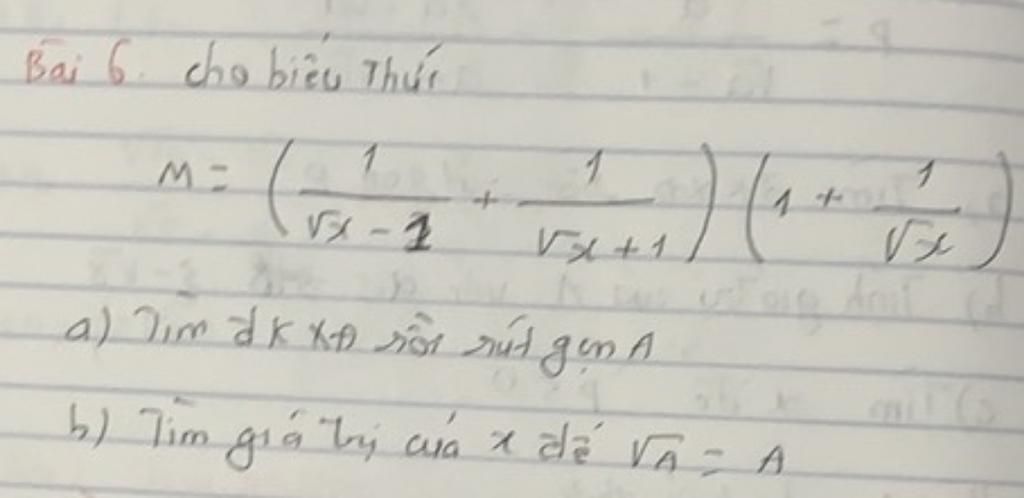 Bài 6. cho biểu Thức
M = (1/(√x - 1) + 1/(√x + 1)) (1 + 1/√x)
a) Tìm đk xđ rồi rút gọn A
b) Tìm giá trị của x để √A = A